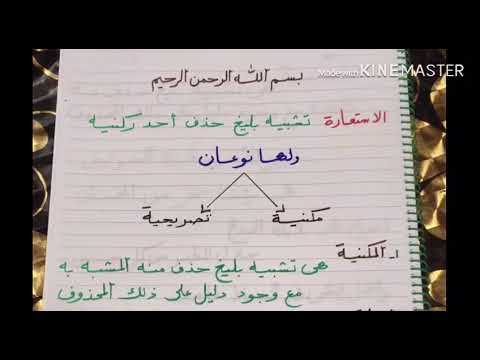 Made with KINEMASTER
بسم الله الرحمن الرحيم
الاستعارة تشبيه بليغ حذف أحد ركنيه
ولها نوعان
مكنية تصريحية
١- المكنية
هى تشبيه بليغ حذف منه المشبه به
مع وجود دليل على ذلك المحذوف